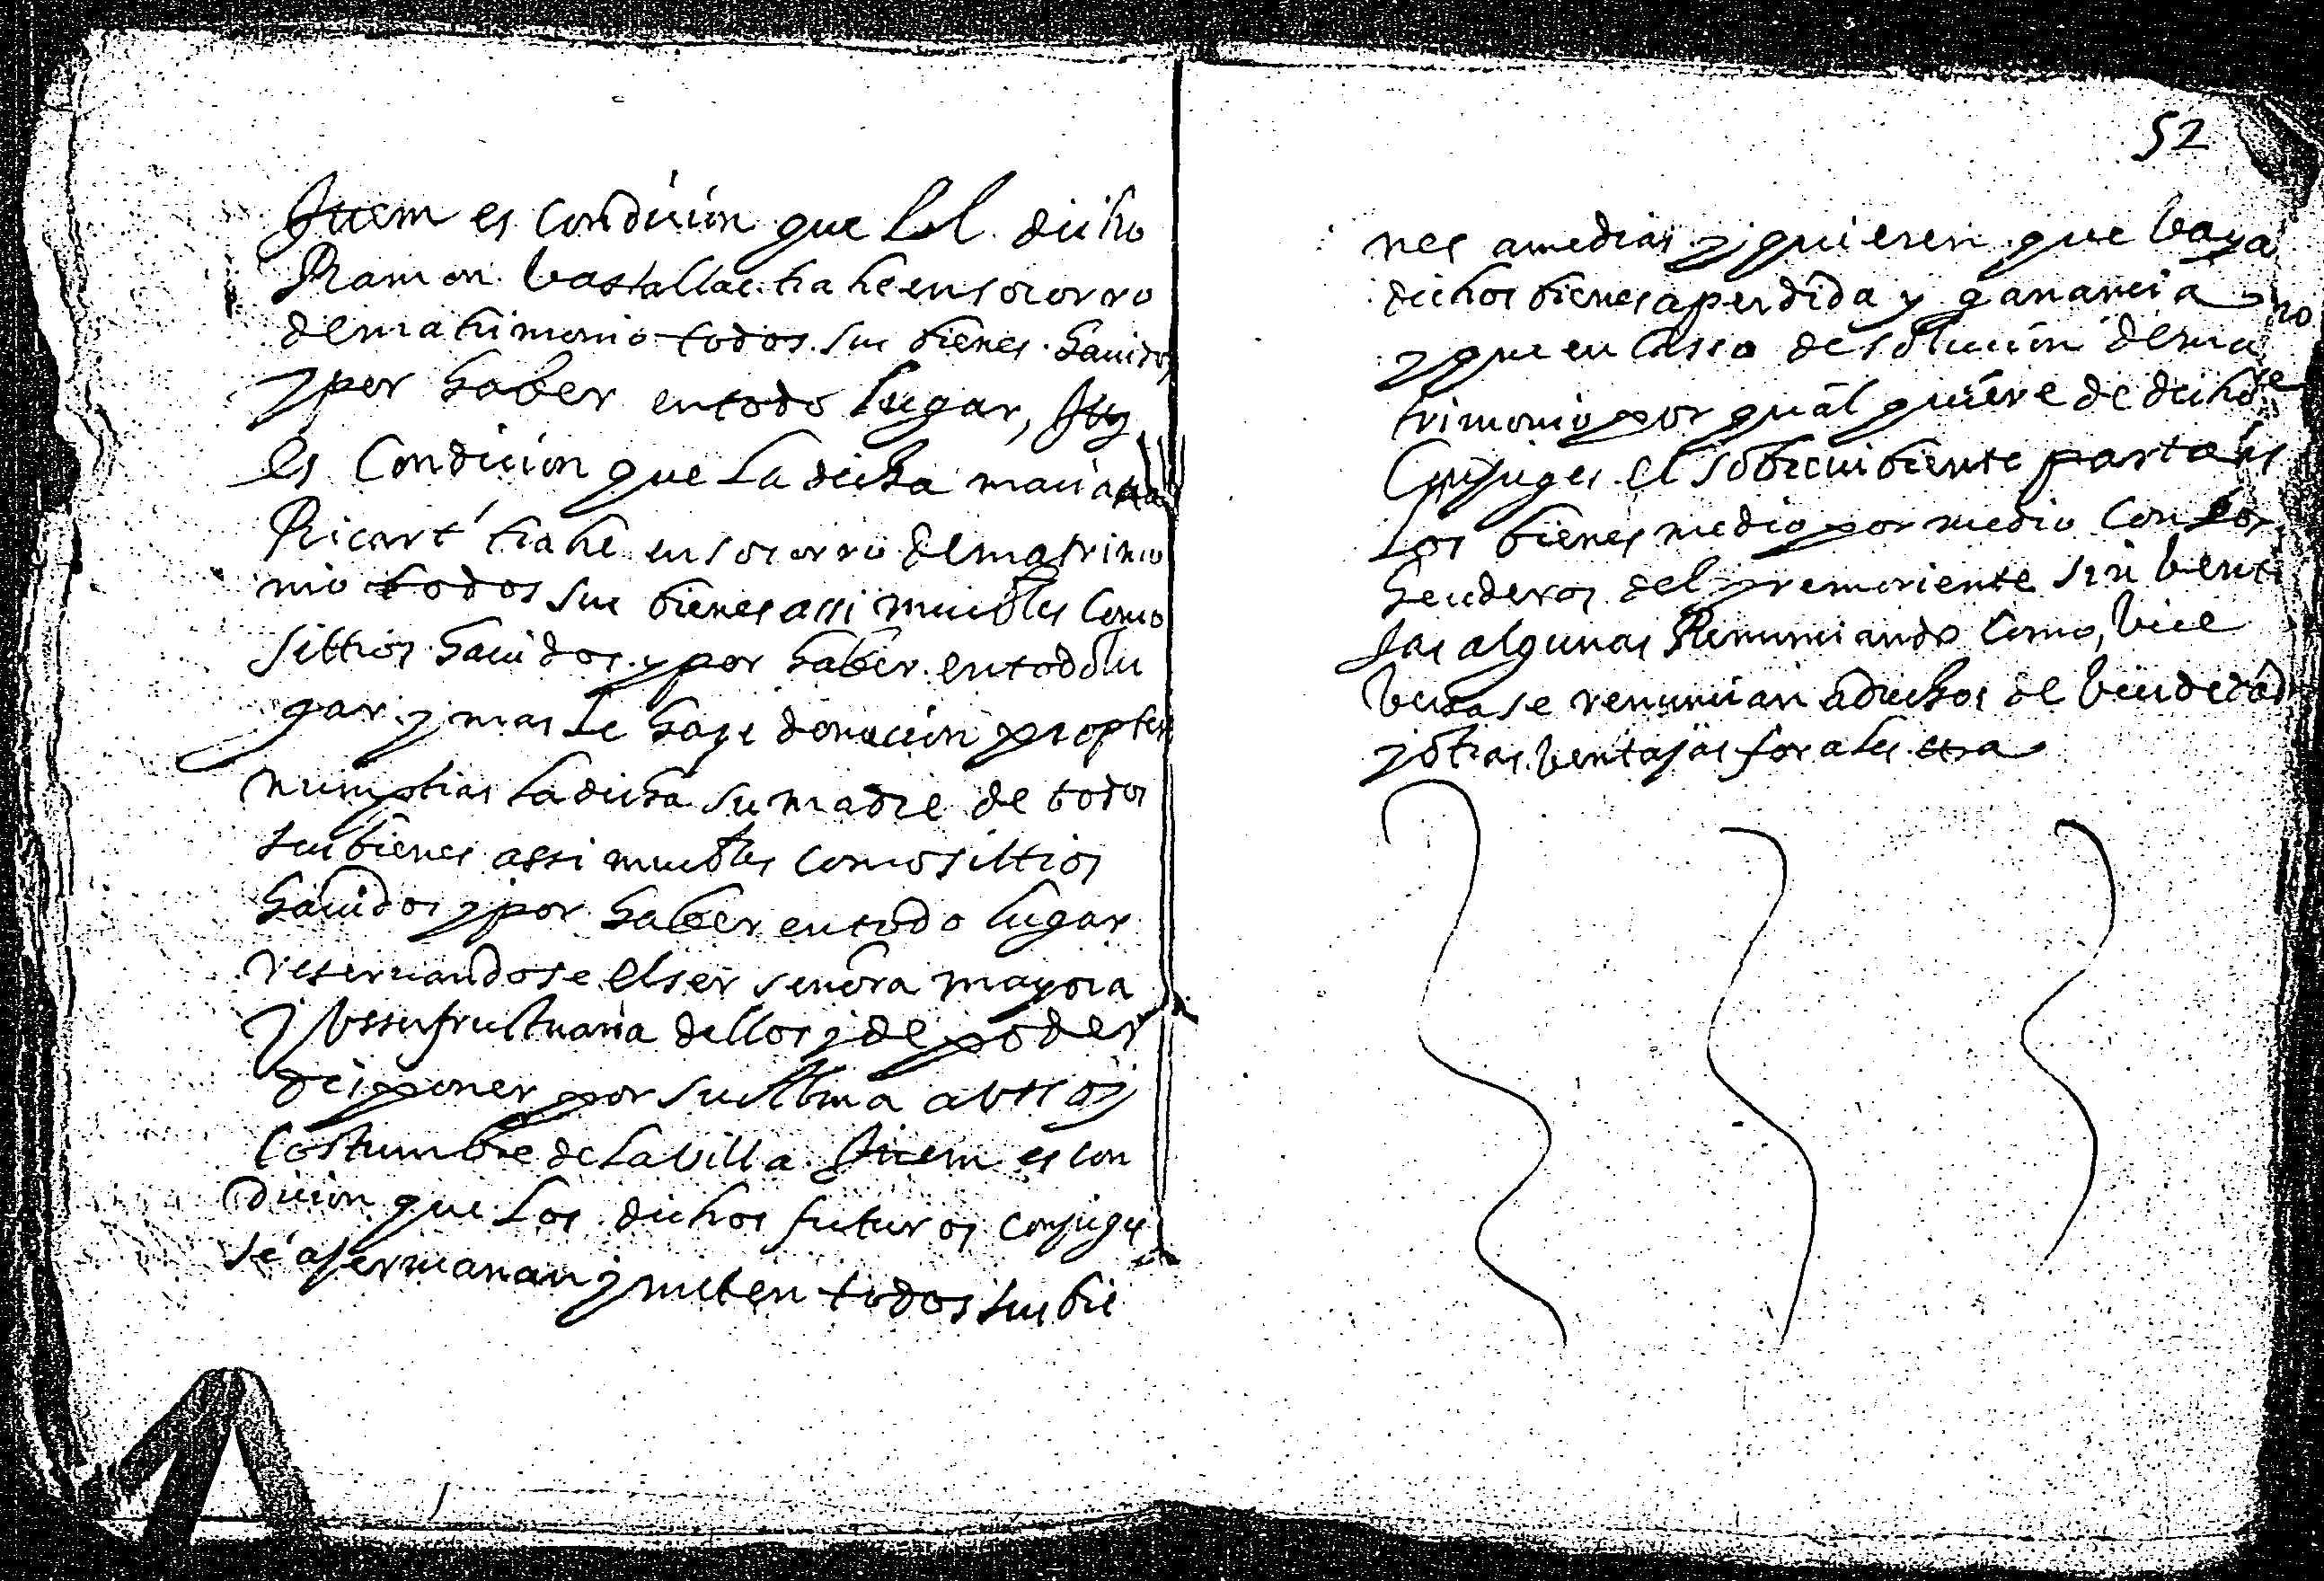 Ittem es condicion que El dicho
Ramon bastallac trahe en socorro
de matrimonio todos sus bienes hauidos
y por haber en todo lugar, Itt
es Condicion que La dicha mariana
Ricart trahe en socorro de matrimo
nio todos sus bienes assi muebles como
sittios hauidos y por haber en todo lu
gar y mas Le haze donacion propter
numptias La dicha su madre de todos
sus bienes assi muebles como sittios
hauidos y por haber en todo lugar
reseruandose el ser señora mayora
y ussufructuaria dellos y de poder
disponer por su Alma a usso y
costumbre de La villa. Ittem es con
dicion que Los dichos futuros conjuges
se ajermanan y meten todos sus bie
52
nes a medias y quieren que baya
dichos bienes a perdida y ganancia
y que en Casso de solucion de ma
trimonio por qual quiere de dichos
Conjuges el sobreuibiente parta
Los bienes medio por medio con Los
herederos del premoriente sin bent
jas algunas Renunciando Como, vice
bersa se renuncian a drechos de biudedad
y otras bentajas forales etta